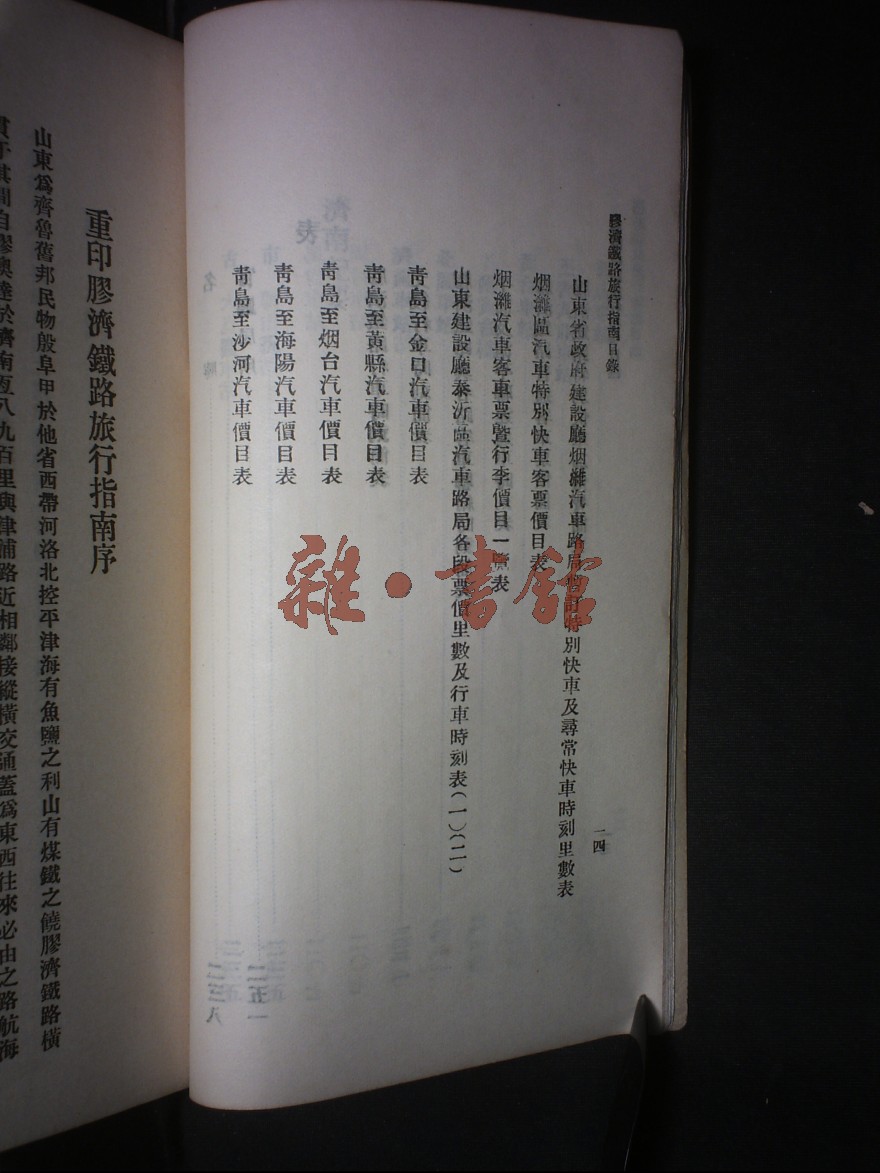 膠濟鐵路旅行指南目錄
二四
山東省政府建設廳烟濰汽車路局暫訂特別快車及尋常快車時刻里數表
烟濰區汽車特別快車客票價目表
烟濰汽車客車票暨行李價目一覽表
山東建設廳泰沂區汽車路局各段票價里數及行車時刻表(一)(二)
青島至金口汽車價目表
青島至黃縣汽車價目表
青島至烟台汽車價目表
青島至海陽汽車價目表
青島至沙河汽車價目表
雜·書館
重印膠濟鐵路旅行指南序
山東爲齊魯舊邦民物殷阜甲於他省西帶河洛北控平津海有魚鹽之利山有煤鐵之饒膠濟鐵路橫
貫于其間自膠澳達於濟南亙八九百里與津浦路近相鄰接縱橫交通蓋爲東西往來必由之路航海